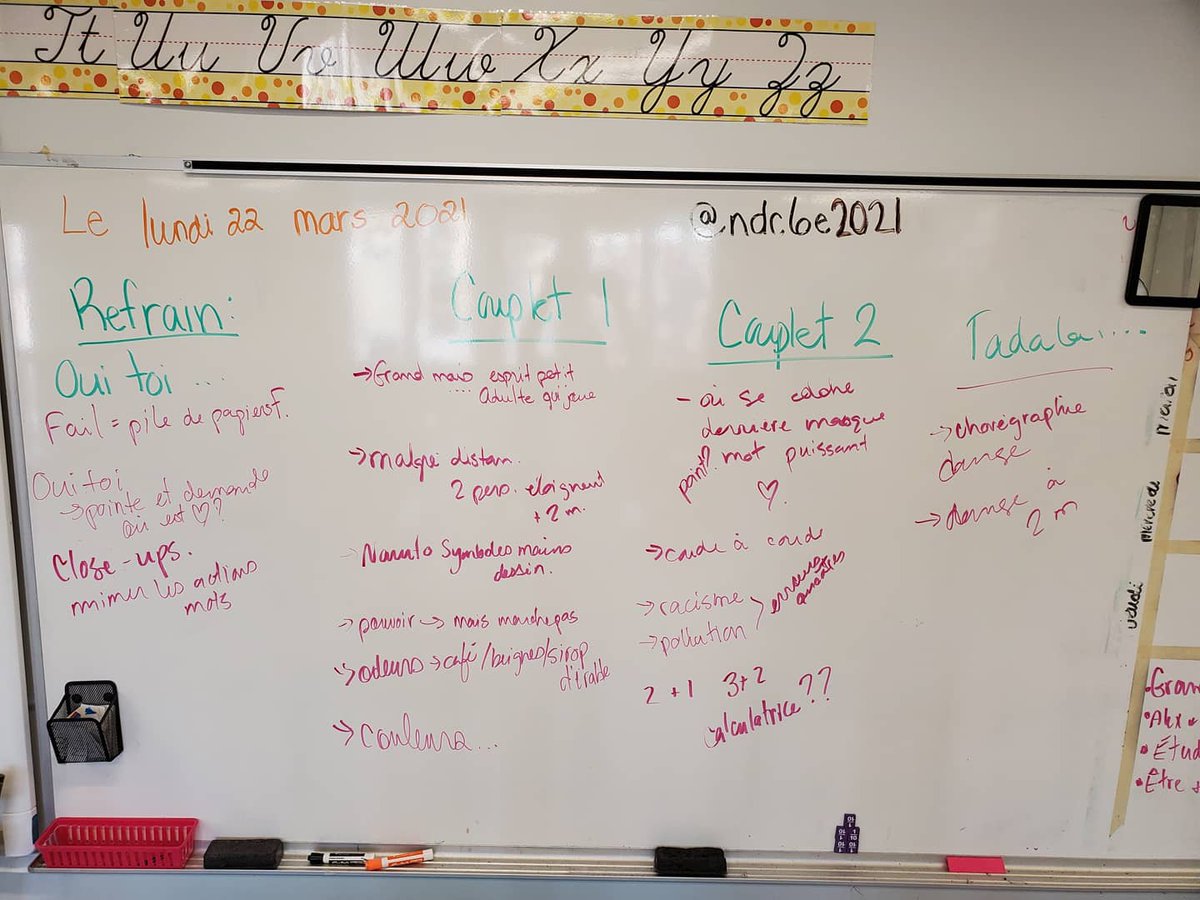 Tt Uu Vv Ww Xx Yy Zz
Le lundi 22 mars 2021
@ndr.6e2021
Refrain:
Oui toi ...
Fail = pile de papiers F.
Oui toi
→ pointe et demande
où est ♡?
Close-ups.
mimer les actions
mots
Couplet 1
→ Grand mais esprit petit
.... Adulte qui joue
→ malgré distan.
2 pers. éloignent
+ 2 m.
Naruto Symboles mains
dessin.
→ pouvoir → mais marche pas
→ odeurs → café/beignes/sirop
d'érable
→ couleurs...
Couplet 2
- où se cache
derrière masque
♡ mot puissant
♡.
→ coude à coude
→ racisme
→ pollution
2 + 1 3+2
calculatrice ??
Tadala.....
→ chorégraphie
danse
→ danse à
2 m
Mercredi
• Gran
• Alex
• Étud
• Être